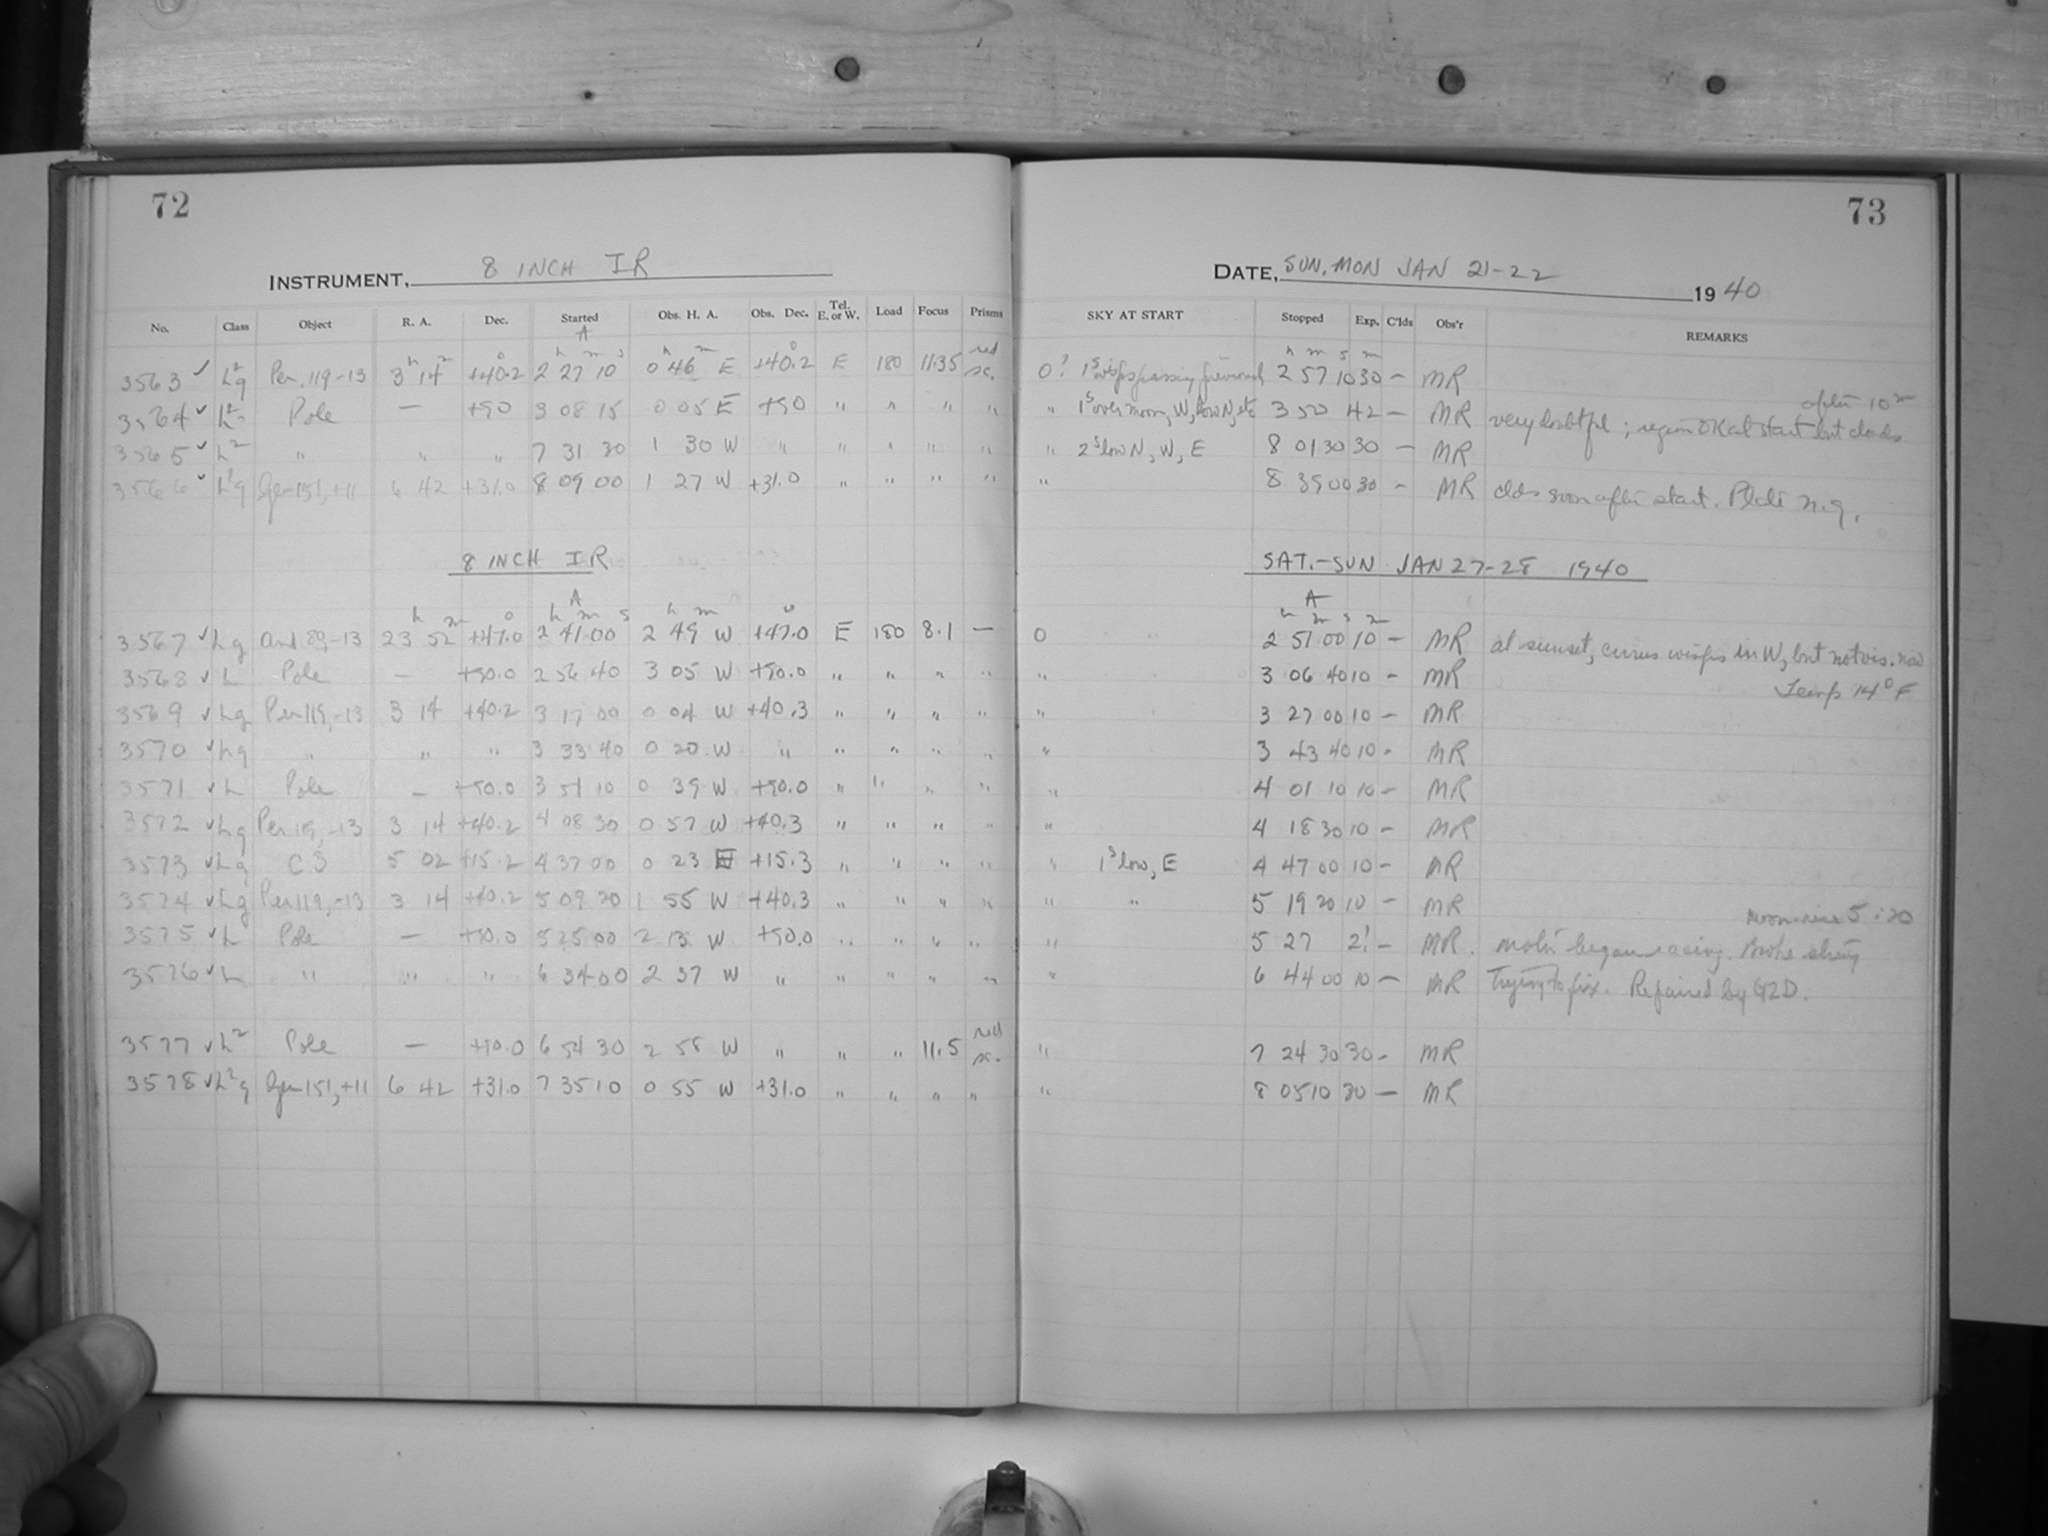 72
INSTRUMENT, 8 INCH IR
No. Class Object R. A. Dec. Started Obs. H. A. Obs. Dec. Tel. E. or W. Load Focus Prisms
A
3563 ✓ L²g Per. 119-13 3ʰ 14ᵐ +40.2° 2ʰ 27ᵐ 10ˢ 0ʰ 46ᵐ E +40.2° E 180 11.35 red sc.
3564 ✓ L² Pole — +90 3 08 15 0 05 E +90 " " " "
3565 ✓ L² " " " 7 31 30 1 30 W " " " " "
3566 ✓ L²g Gem 151, +11 6 42 +31.0 8 09 00 1 27 W +31.0 " " " "
8 INCH IR
A
3567 ✓ Lg And 89,-13 23ʰ 52ᵐ +47.0° 2ʰ 41ᵐ 00ˢ 2ʰ 49ᵐ W +47.0° E 180 8.1 —
3568 ✓ L Pole — +90.0 2 56 40 3 05 W +90.0 " " " "
3569 ✓ Lg Per 119,-13 3 14 +40.2 3 17 00 0 04 W +40.3 " " " "
3570 ✓ Lg " " " 3 33 40 0 20 W " " " " "
3571 ✓ L Pole — +90.0 3 51 10 0 39 W +90.0 " " " "
3572 ✓ Lg Per 119,-13 3 14 +40.2 4 08 30 0 57 W +40.3 " " " "
3573 ✓ Lg C3 5 02 +15.2 4 37 00 0 23 E +15.3 " " " "
3574 ✓ Lg Per 119,-13 3 14 +40.2 5 09 20 1 55 W +40.3 " " " "
3575 ✓ L Pole — +90.0 5 25 00 2 12 W +90.0 " " " "
3576 ✓ L " " " 6 34 00 2 37 W " " " " "
3577 ✓ L² Pole — +90.0 6 54 30 2 58 W " " " 11.5 red sc.
3578 ✓ L²g Gem 151, +11 6 42 +31.0 7 35 10 0 55 W +31.0 " " " "
73
DATE, SUN, MON JAN 21-22 1940
SKY AT START Stopped Exp. C'lds Obs'r REMARKS
0? 1ˢ wisps passing 2ʰ 57ᵐ 10ˢ 30ᵐ — MR
" 1ˢ over moon, W, low N, etc 3 50 42 — MR very doubtful; region OK at start but clouds after 10ᵐ
" 2ˢ low N, W, E 8 01 30 30 — MR
" 8 39 00 30 — MR clds soon after start. Plate n.g.
SAT.-SUN JAN 27-28 1940
A
0 2ʰ 51ᵐ 00ˢ 10ᵐ — MR at sunset, cirrus wisps in W, but not vis. now
" 3 06 40 10 — MR Temp 14° F
" 3 27 00 10 — MR
" 3 43 40 10 — MR
" 4 01 10 10 — MR
" 4 18 30 10 — MR
" 1ˢ low, E 4 47 00 10 — MR
" " 5 19 20 10 — MR moon-rise 5:20
" 5 27 2! — MR. motor began racing. Broke string
" 6 44 00 10 — MR trying to fix. Repaired by GZD.
" 7 24 30 30 — MR
" 8 05 10 30 — MR